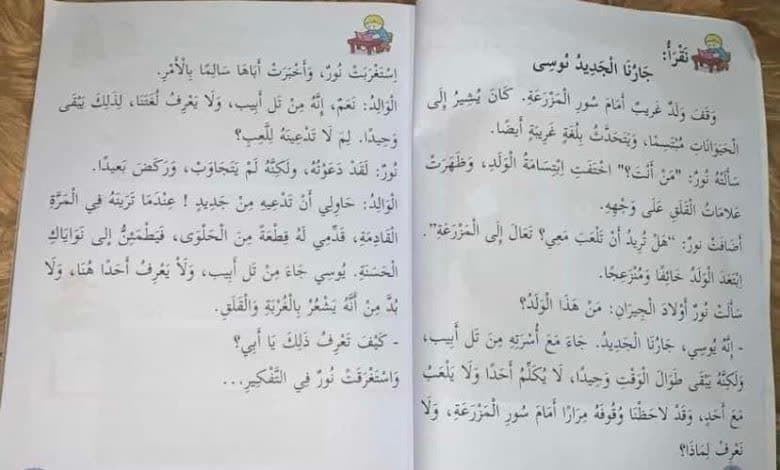 نَقْرَأُ:
جَارُنَا الْجَدِيدُ يُوسِي
وَقَفَ وَلَدٌ غَرِيبٌ أَمَامَ سُورِ الْمَزْرَعَةِ. كَانَ يُشِيرُ إِلَى
الْحَيَوَانَاتِ مُبْتَسِمًا، وَيَتَحَدَّثُ بِلُغَةٍ غَرِيبَةٍ أَيْضًا.
سَأَلَتْهُ نُورُ: "مَنْ أَنْتَ؟" اخْتَفَتِ ابْتِسَامَةُ الْوَلَدِ، وَظَهَرَتْ
عَلَامَاتُ الْقَلَقِ عَلَى وَجْهِهِ.
أَضَافَتْ نورُ: "هَلْ تُرِيدُ أَنْ تَلْعَبَ مَعِي؟ تَعَالَ إِلَى الْمَزْرَعَةِ".
اِبْتَعَدَ الْوَلَدُ خَائِفًا وَمُنْزَعِجًا.
سَأَلَتْ نُورُ أَوْلَادَ الْجِيرَانِ: مَنْ هَذَا الْوَلَدُ؟
- إِنَّهُ يُوسِي، جَارُنَا الْجَدِيدُ. جَاءَ مَعَ أُسْرَتِهِ مِنْ تَل أَبِيب،
وَلَكِنَّهُ يَبْقَى طَوَالَ الْوَقْتِ وَحِيدًا، لَا يُكَلِّمُ أَحَدًا وَلَا يَلْعَبُ
مَعَ أَحَدٍ، وَقَدْ لَاحَظْنَا وُقُوفَهُ مِرَارًا أَمَامَ سُورِ الْمَزْرَعَةِ، وَلَا
نَعْرِفُ لِمَاذَا؟
اِسْتَغْرَبَتْ نُورُ، وَأَخْبَرَتْ أَبَاهَا سَالِمًا بِالْأَمْرِ.
الْوَالِدُ: نَعَمْ، إِنَّهُ مِنْ تَل أَبِيب، وَلَا يَعْرِفُ لُغَتَنَا، لِذَلِكَ يَبْقَى
وَحِيدًا. لِمَ لَا تَدْعِينَهُ لِلَّعِبِ؟
نُورُ: لَقَدْ دَعَوْتُهُ، وَلَكِنَّهُ لَمْ يَتَجَاوَبْ، وَرَكَضَ بَعِيدًا.
الْوَالِدُ: حَاوِلِي أَنْ تَدْعِيهِ مِنْ جَدِيدٍ ! عِنْدَمَا تَرَيْنَهُ فِي الْمَرَّةِ
الْقَادِمَةِ، قَدِّمِي لَهُ قِطْعَةً مِنَ الْحَلْوَى، فَيَطْمَئِنُّ إلى نَوَايَاكِ
الْحَسَنَةِ. يُوسِي جَاءَ مِنْ تَل أَبِيب، وَلَا يَعْرِفُ أَحَدًا هُنَا، وَلَا
بُدَّ مِنْ أَنَّهُ يَشْعُرُ بِالْغُرْبَةِ وَالْقَلَقِ.
- كَيْفَ تَعْرِفُ ذَلِكَ يَا أَبِي؟
وَاسْتَغْرَقَتْ نُورُ فِي التَّفْكِيرِ...